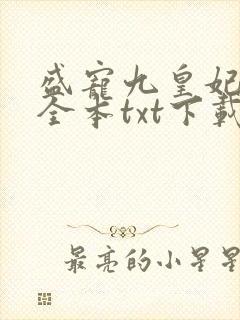 盛寵九皇妃
全本txt下載
最亮的小星星